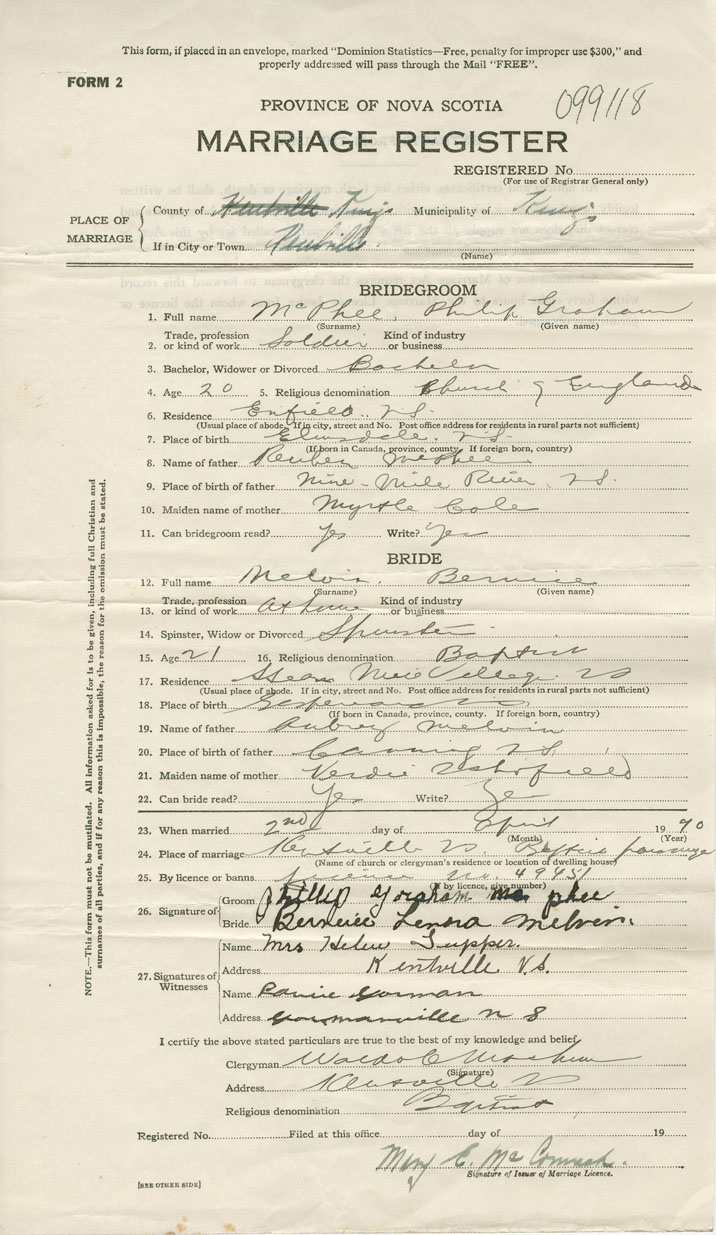 This form, if placed in an envelope, marked "Dominion Statistics—Free, penalty for improper use $300," and
properly addressed will pass through the Mail "FREE".
FORM 2
099118
PROVINCE OF NOVA SCOTIA
MARRIAGE REGISTER
REGISTERED No.
(For use of Registrar General only)
PLACE OF MARRIAGE
County of Kentville Kings Municipality of Kings
If in City or Town Kentville
(Name)
BRIDEGROOM
1. Full name McPhee, Philip Graham
(Surname) (Given name)
2. Trade, profession or kind of work Soldier Kind of industry or business
3. Bachelor, Widower or Divorced Bachelor
4. Age 20 5. Religious denomination Church of England
6. Residence Enfield. N.S.
(Usual place of abode. If in city, street and No. Post office address for residents in rural parts not sufficient)
7. Place of birth Elmsdale. N.S.
(If born in Canada, province, county. If foreign born, country)
8. Name of father Reuben McPhee
9. Place of birth of father Nine-Mile River, N.S.
10. Maiden name of mother Myrtle Cole
11. Can bridegroom read? Yes Write? Yes
BRIDE
12. Full name Melvin. Bernice
(Surname) (Given name)
13. Trade, profession or kind of work at home Kind of industry or business
14. Spinster, Widow or Divorced Spinster
15. Age 21 16. Religious denomination Baptist
17. Residence Steam Mill Village. NS
(Usual place of abode. If in city, street and No. Post office address for residents in rural parts not sufficient)
18. Place of birth
(If born in Canada, province, county. If foreign born, country)
19. Name of father Aubrey Melvin
20. Place of birth of father Canning N.S.
21. Maiden name of mother Verdie Schofield
22. Can bride read? Yes Write? Yes
23. When married 2nd day of April 1940
(Month) (Year)
24. Place of marriage Kentville NS. Baptist parsonage
(Name of church or clergyman's residence or location of dwelling house)
25. By licence or banns licence No. 49451
(If by licence, give number)
26. Signature of
Groom Phillip Graham Mc phee
Bride Berneice Lenora Melvin.
27. Signatures of Witnesses
Name Mrs Helen Tupper.
Address Kentville N.S.
Name Gorman
Address Gormanville N S
I certify the above stated particulars are true to the best of my knowledge and belief.
Clergyman Waldo C Machum
(Signature)
Address Kentville NS
Religious denomination Baptist
Registered No. Filed at this office day of 19
Mary E. McCormack.
Signature of Issuer of Marriage Licence.
[SEE OTHER SIDE]
NOTE.—This form must not be mutilated. All information asked for is to be given, including full Christian and
surnames of all parties, and if for any reason this is impossible, the reason for the omission must be stated.